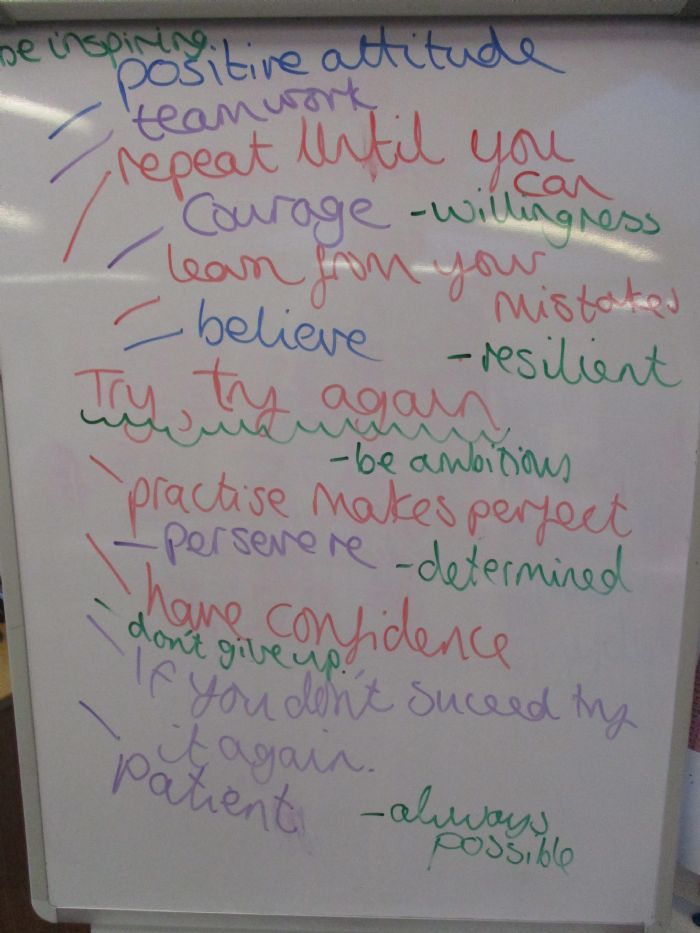 be inspiring.
positive attitude
teamwork
repeat until you
can
courage -willingness
learn from your
mistakes
believe
-resilient
Try, try again
-be ambitious
practise makes perfect
-persevere
-determined
have confidence
don't give up.
If you don't suceed try
it again.
patient
-always
possible